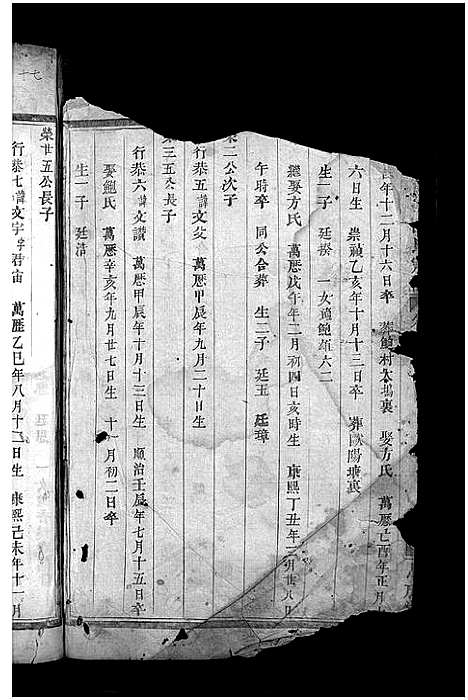 酉年十二月十六日卒 葬鮑村太塢裏 娶方氏 萬歷己酉年正月
六日生 崇禎乙亥年十月十三日卒 葬歐陽塘裏
生一子 廷 一女適鮑 六二
繼娶方氏 萬歷戊午年二月初四日亥時生 康熙丁丑年 月廿八日
午時卒 同公合葬 生二子 廷玉 廷璋
榮二公次子
行恭五諱文 萬歷甲辰年九月二十日生
榮三五公長子
行恭六諱文讚 萬歷甲辰年十月十三日生 順治壬辰年七月十五日卒
娶鮑氏 萬歷辛亥年九月廿七日生 十一月初二日卒
生一子 廷清
十七
榮廿五公長子
行恭七諱文宇字君 萬歷乙巳年八月十二日生 康熙己未年十一月